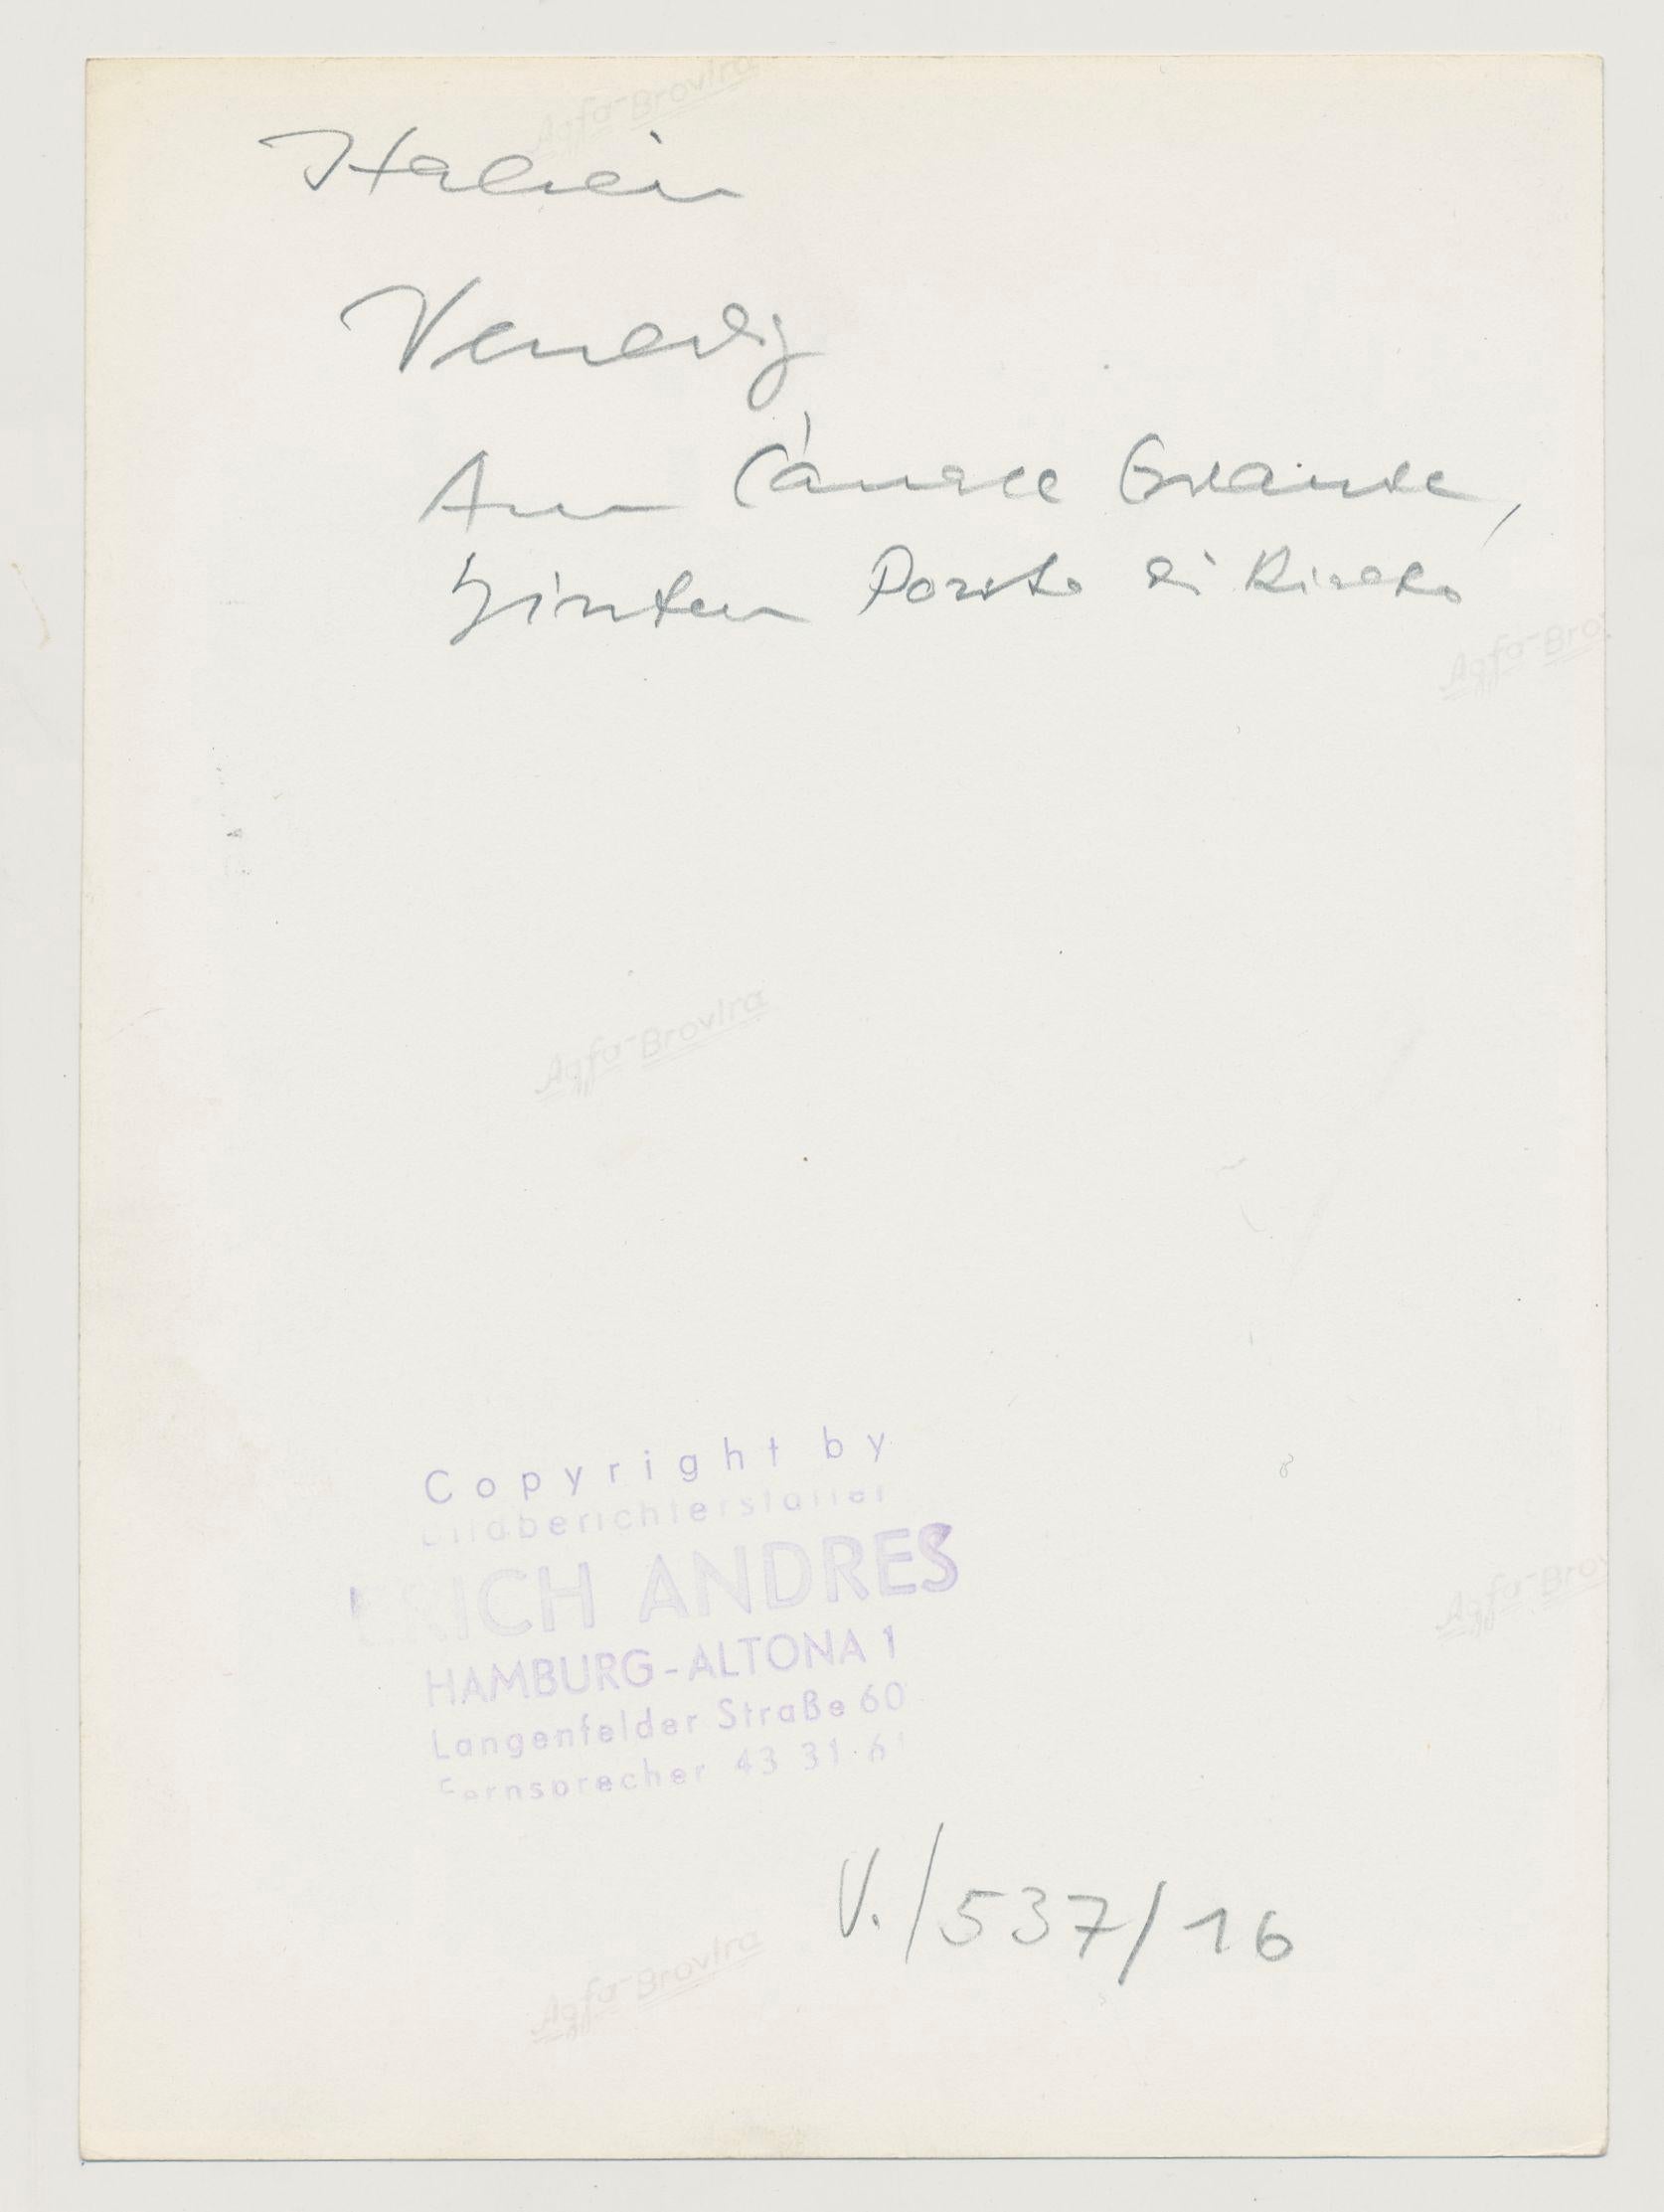 Agfa-Brovira
Italien
Venedig
Am Canale Grande,
hinten Ponte di Rialto
Agfa-Brov
Agfa-Brovira
Copyright by
Bildberichterstatter
ERICH ANDRES
HAMBURG-ALTONA 1
Langenfelder Straße 60
Fernsprecher 43 31 61
Agfa-Brov
V./537/16
Agfa-Brovira